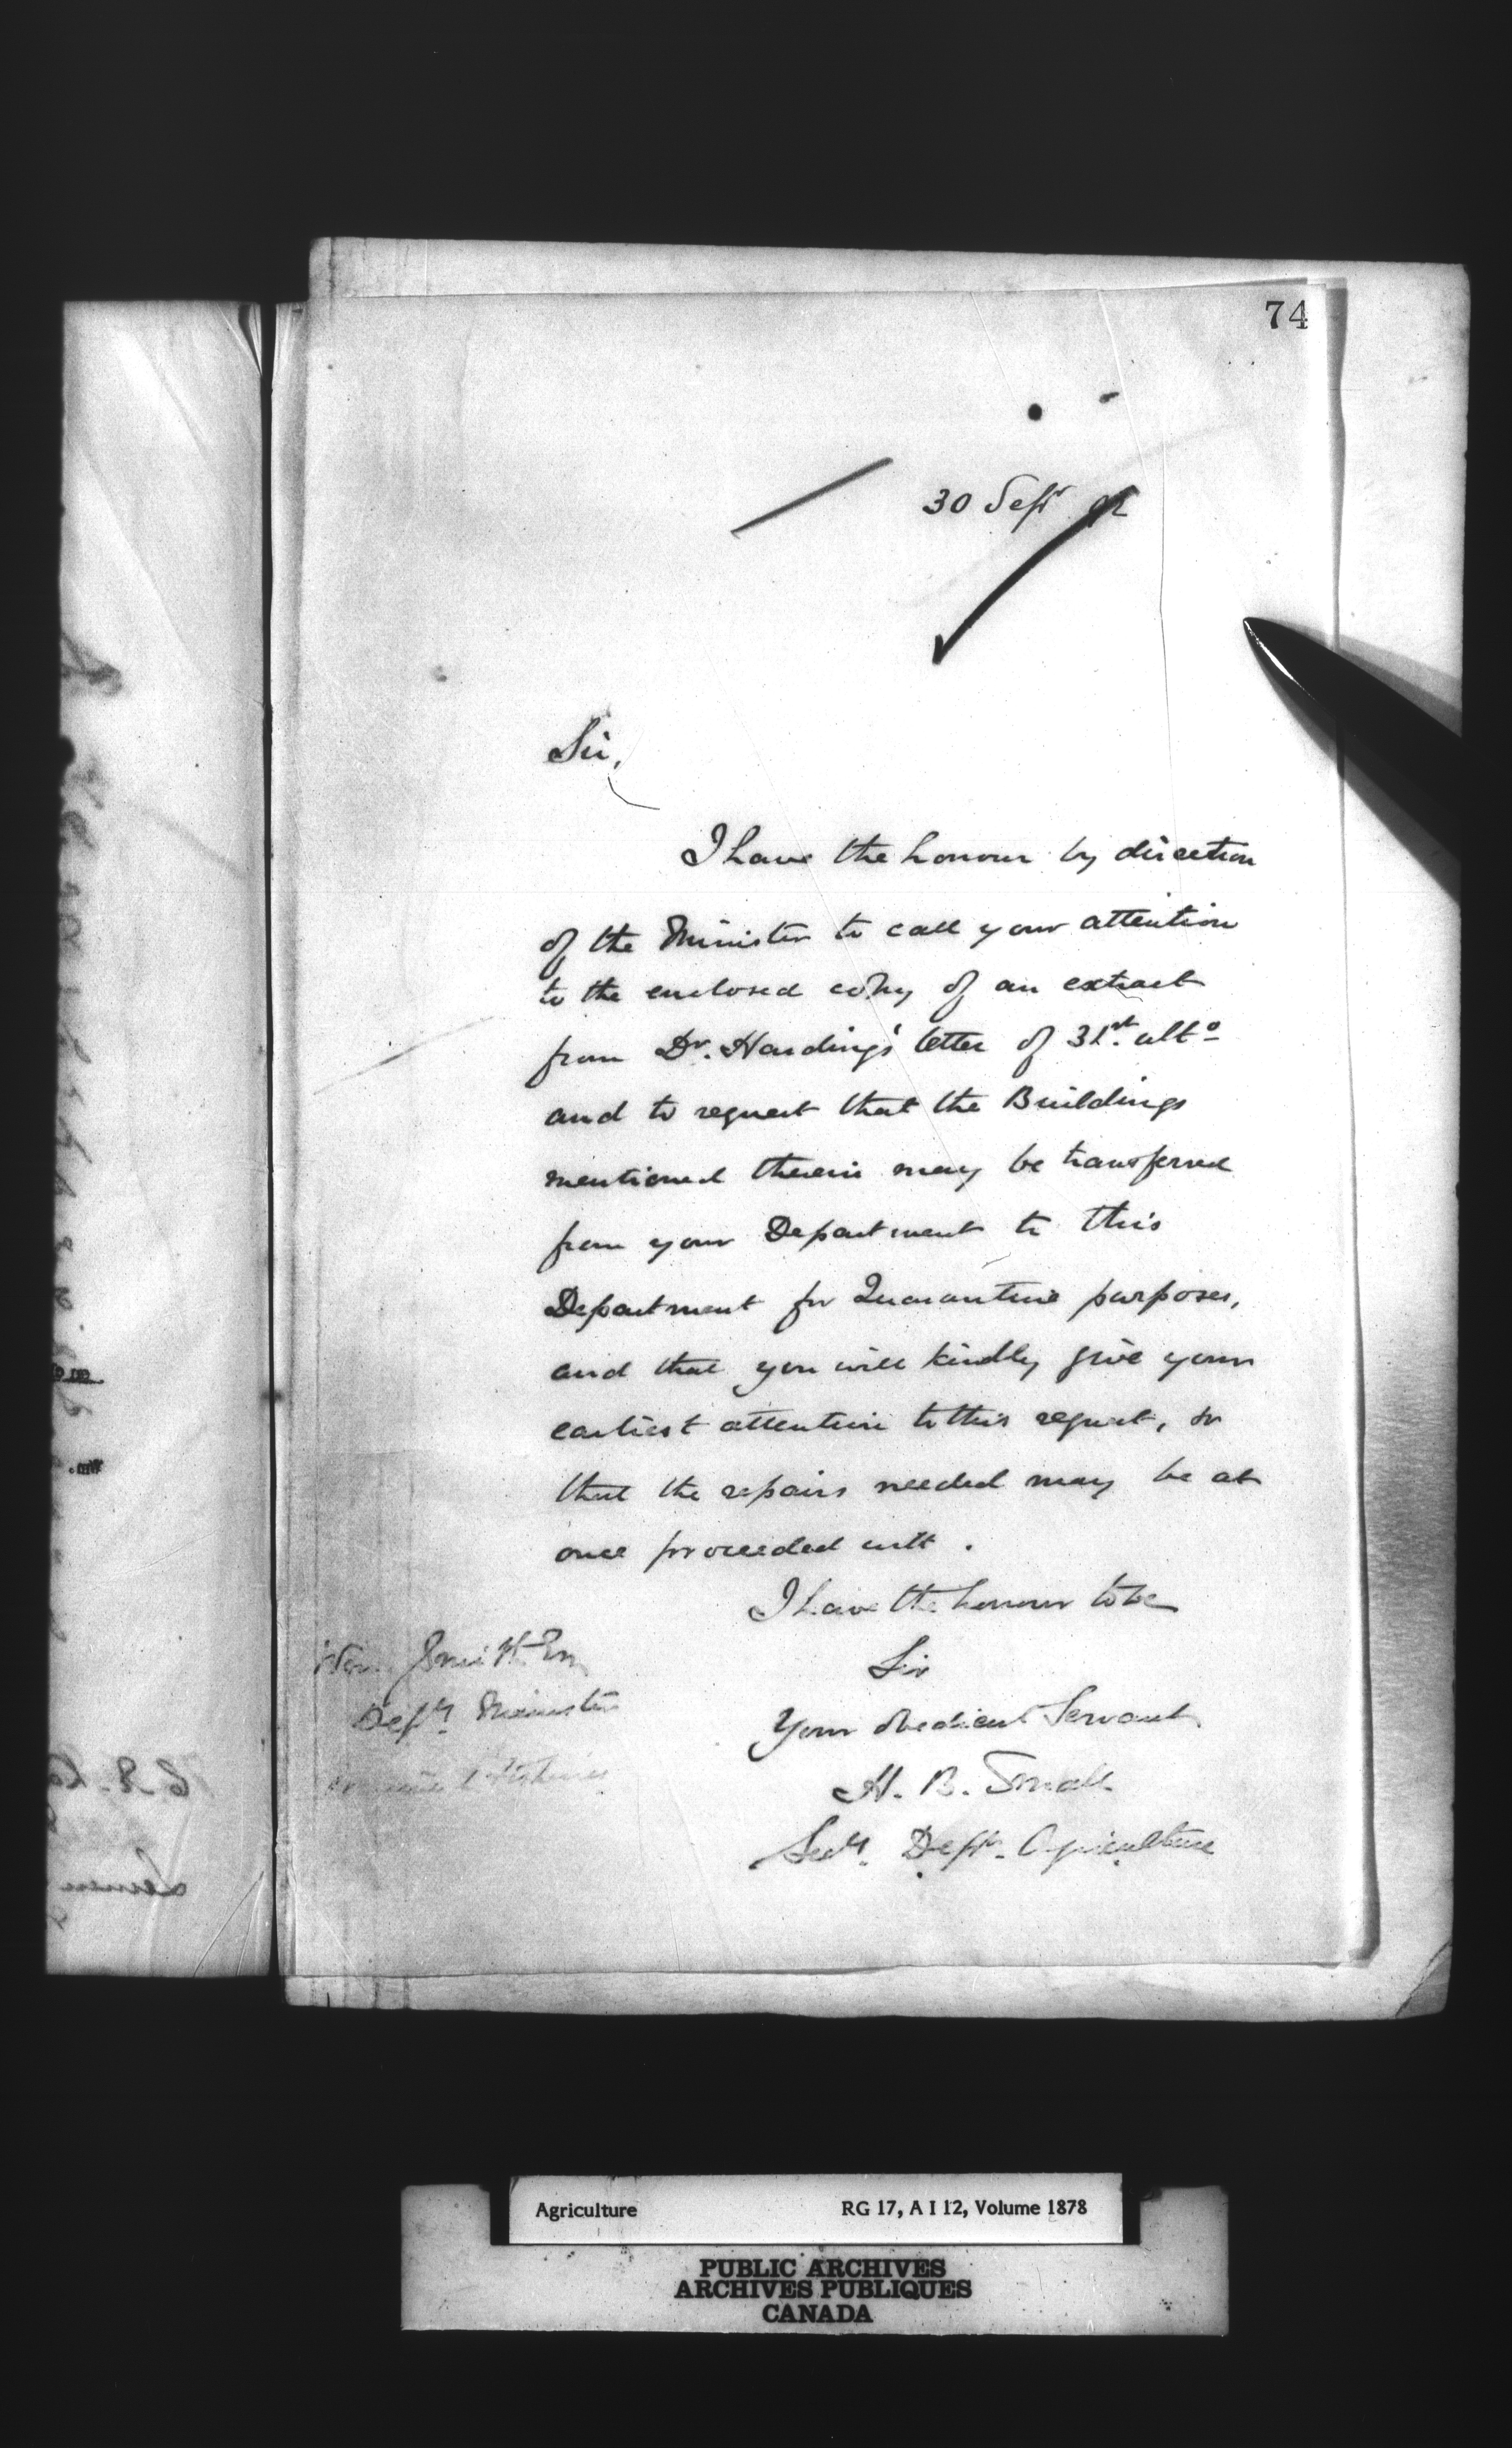 74
30 Sept 92
Sir,
I have the honour by direction
of the Minister to call your attention
to the enclosed copy of an extract
from Dr. Harding's letter of 31st. ulto
and to request that the Buildings
mentioned therein may be transferred
from your Department to this
Department for Quarantine purposes,
and that you will kindly give your
earliest attention to this request, so
that the repairs needed may be at
once proceeded with.
I have the honour to be
Sir
Your obedient Servant
H. B. Small
Secy. Dept. Agriculture
Wm. Smith Esq
Depy. Minister
Fisheries
Agriculture RG 17, A I 12, Volume 1878
PUBLIC ARCHIVES
ARCHIVES PUBLIQUES
CANADA